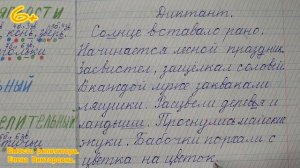 6+
ЯГКОСТИ
конь, зверь
ЬНЫЙ
ЕЛИТЕЛЬНЫЙ
Диктант.
Солнце вставало рано.
Начинается лесной праздник.
Засвистел, защелкал соловей.
В каждой луже заквакали
лягушки. Зацвели деревья и
ландыши. Проснулись майские
жуки. Бабочки порхали с
цветка на цветок.
Елена Викторовна